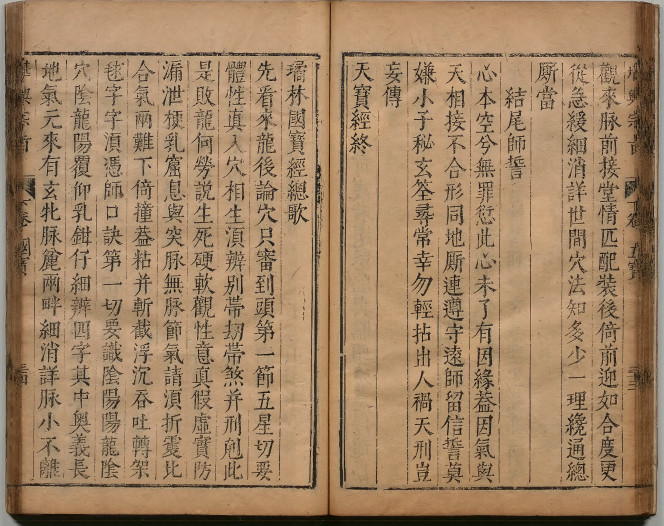 觀來脉前接堂情匹配裝後倚前迎如合度更
從急緩細消詳世間穴法知多少一理纔通總
厮當
結尾師誓
心本空兮無罪愆此心未了有因緣葢因氣與
天相接不合形同地厮連遵守遠師留信誓莫
嫌小子秘玄筌尋常幸勿輕拈出人禍天刑豈
妄傳
天寶經終
璚林國寶經總歌
先看來龍後論穴只審到頭第一節五星切要
體性真入穴相生湏辨别帯刼帯煞并刑剋此
是敗龍何勞説生死硬軟觀性意真假虛實防
漏泄梗乳窟息與突脉無脉節氣請湏折戞比
合氣兩難下倚撞葢粘并斬截浮沉吞吐轉架
毬字字湏憑師口訣第一切要識陰陽陽龍陰
穴陰龍陽覆仰乳鉗仔細辨四字其中奥義長
地氣元來有玄牝脉麄兩畔細消詳脉小不離
卷 國寶